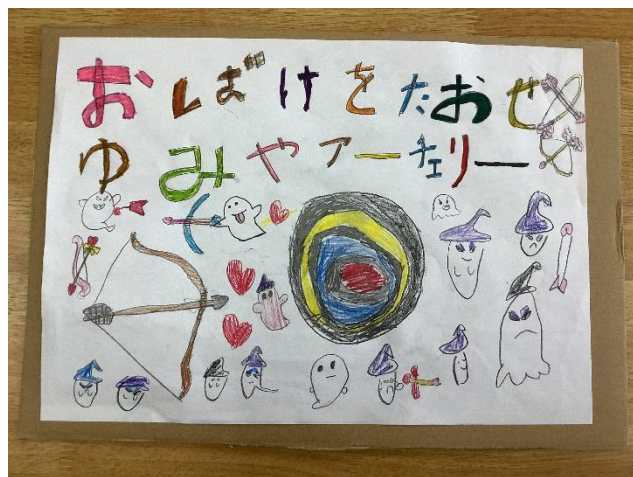 おばけをたおせ
ゆみやアーチェリー